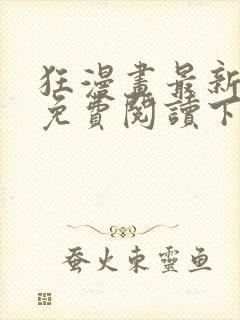 狂漫畫最新
免費閱讀下
蚕火東靈鱼